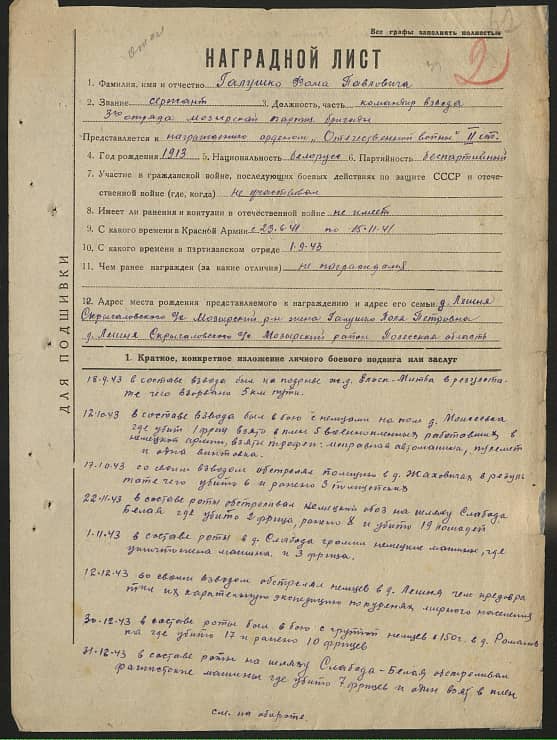 Все графы заполнять полностью
2
НАГРАДНОЙ ЛИСТ
1. Фамилия, имя и отчество Галушко Фома Павлович
2. Звание сержант 3. Должность, часть командир взвода
3го отряда мозырской партиз бригады
Представляется к награждению орденом „Отечественной войны" II ст.
4. Год рождения 1913 5. Национальность белорус 6. Партийность беспартийный
7. Участие в гражданской войне, последующих боевых действиях по защите СССР и отече-
ственной войне (где, когда) не участвовал
8. Имеет ли ранения и контузии в отечественной войне не имеет
9. С какого времени в Красной Армии с 23.6.41 по 15.11.41
10. С какого времени в партизанском отряде 1.9.43
11. Чем ранее награжден (за какие отличия) не награждался
12. Адрес места рождения представляемого к награждению и адрес его семьи д. Лешня
Скрыгаловского с/с Мозырский р-н жена Галушко Петровна
д. Лешня Скрыгаловского с/с Мозырский район Полесская область
ДЛЯ ПОДШИВКИ
1. Краткое, конкретное изложение личного боевого подвига или заслуг
18.9.43 в составе взвода был на подрыве ж.д. в результа-
те чего взорвано 5 км пути.
12.10.43 в составе взвода был в бою с немцами на пом д. Моисеевка
где убит 1 фриц взято в плен 5 военнопленных работавших в
немецкой армии, взяты трофеи: исправная автомашина, пулемет
и одна винтовка.
17.10.43 со своим взводом обстрелял полицию в д. Жаховичах в резуль
тате чего убито 6 и ранено 3 полицейских
22.11.43 в составе роты обстреливал немецкий обоз на шляху Слобода
Белая где убито 2 фрица, ранено 8 и убито 19 лошадей
1.11.43 в составе роты в д. Слобода громил немецкие машины, где
уничтожена машина и 3 фрица.
12.12.43 во своим взводом обстрелял немцев в д. Лешня чем предовра
тил их карательную экспедицию по куреням мирного населения
30.12.43 в составе роты был в бою с группой немцев в 150ч. в д.
где убито 17 и ранено 10 фрицев
31.12.43 в составе роты на шляху Слобода-Белая обстреливал
фашистские машины где убито 7 фрицев и один взят в плен
см. на обороте